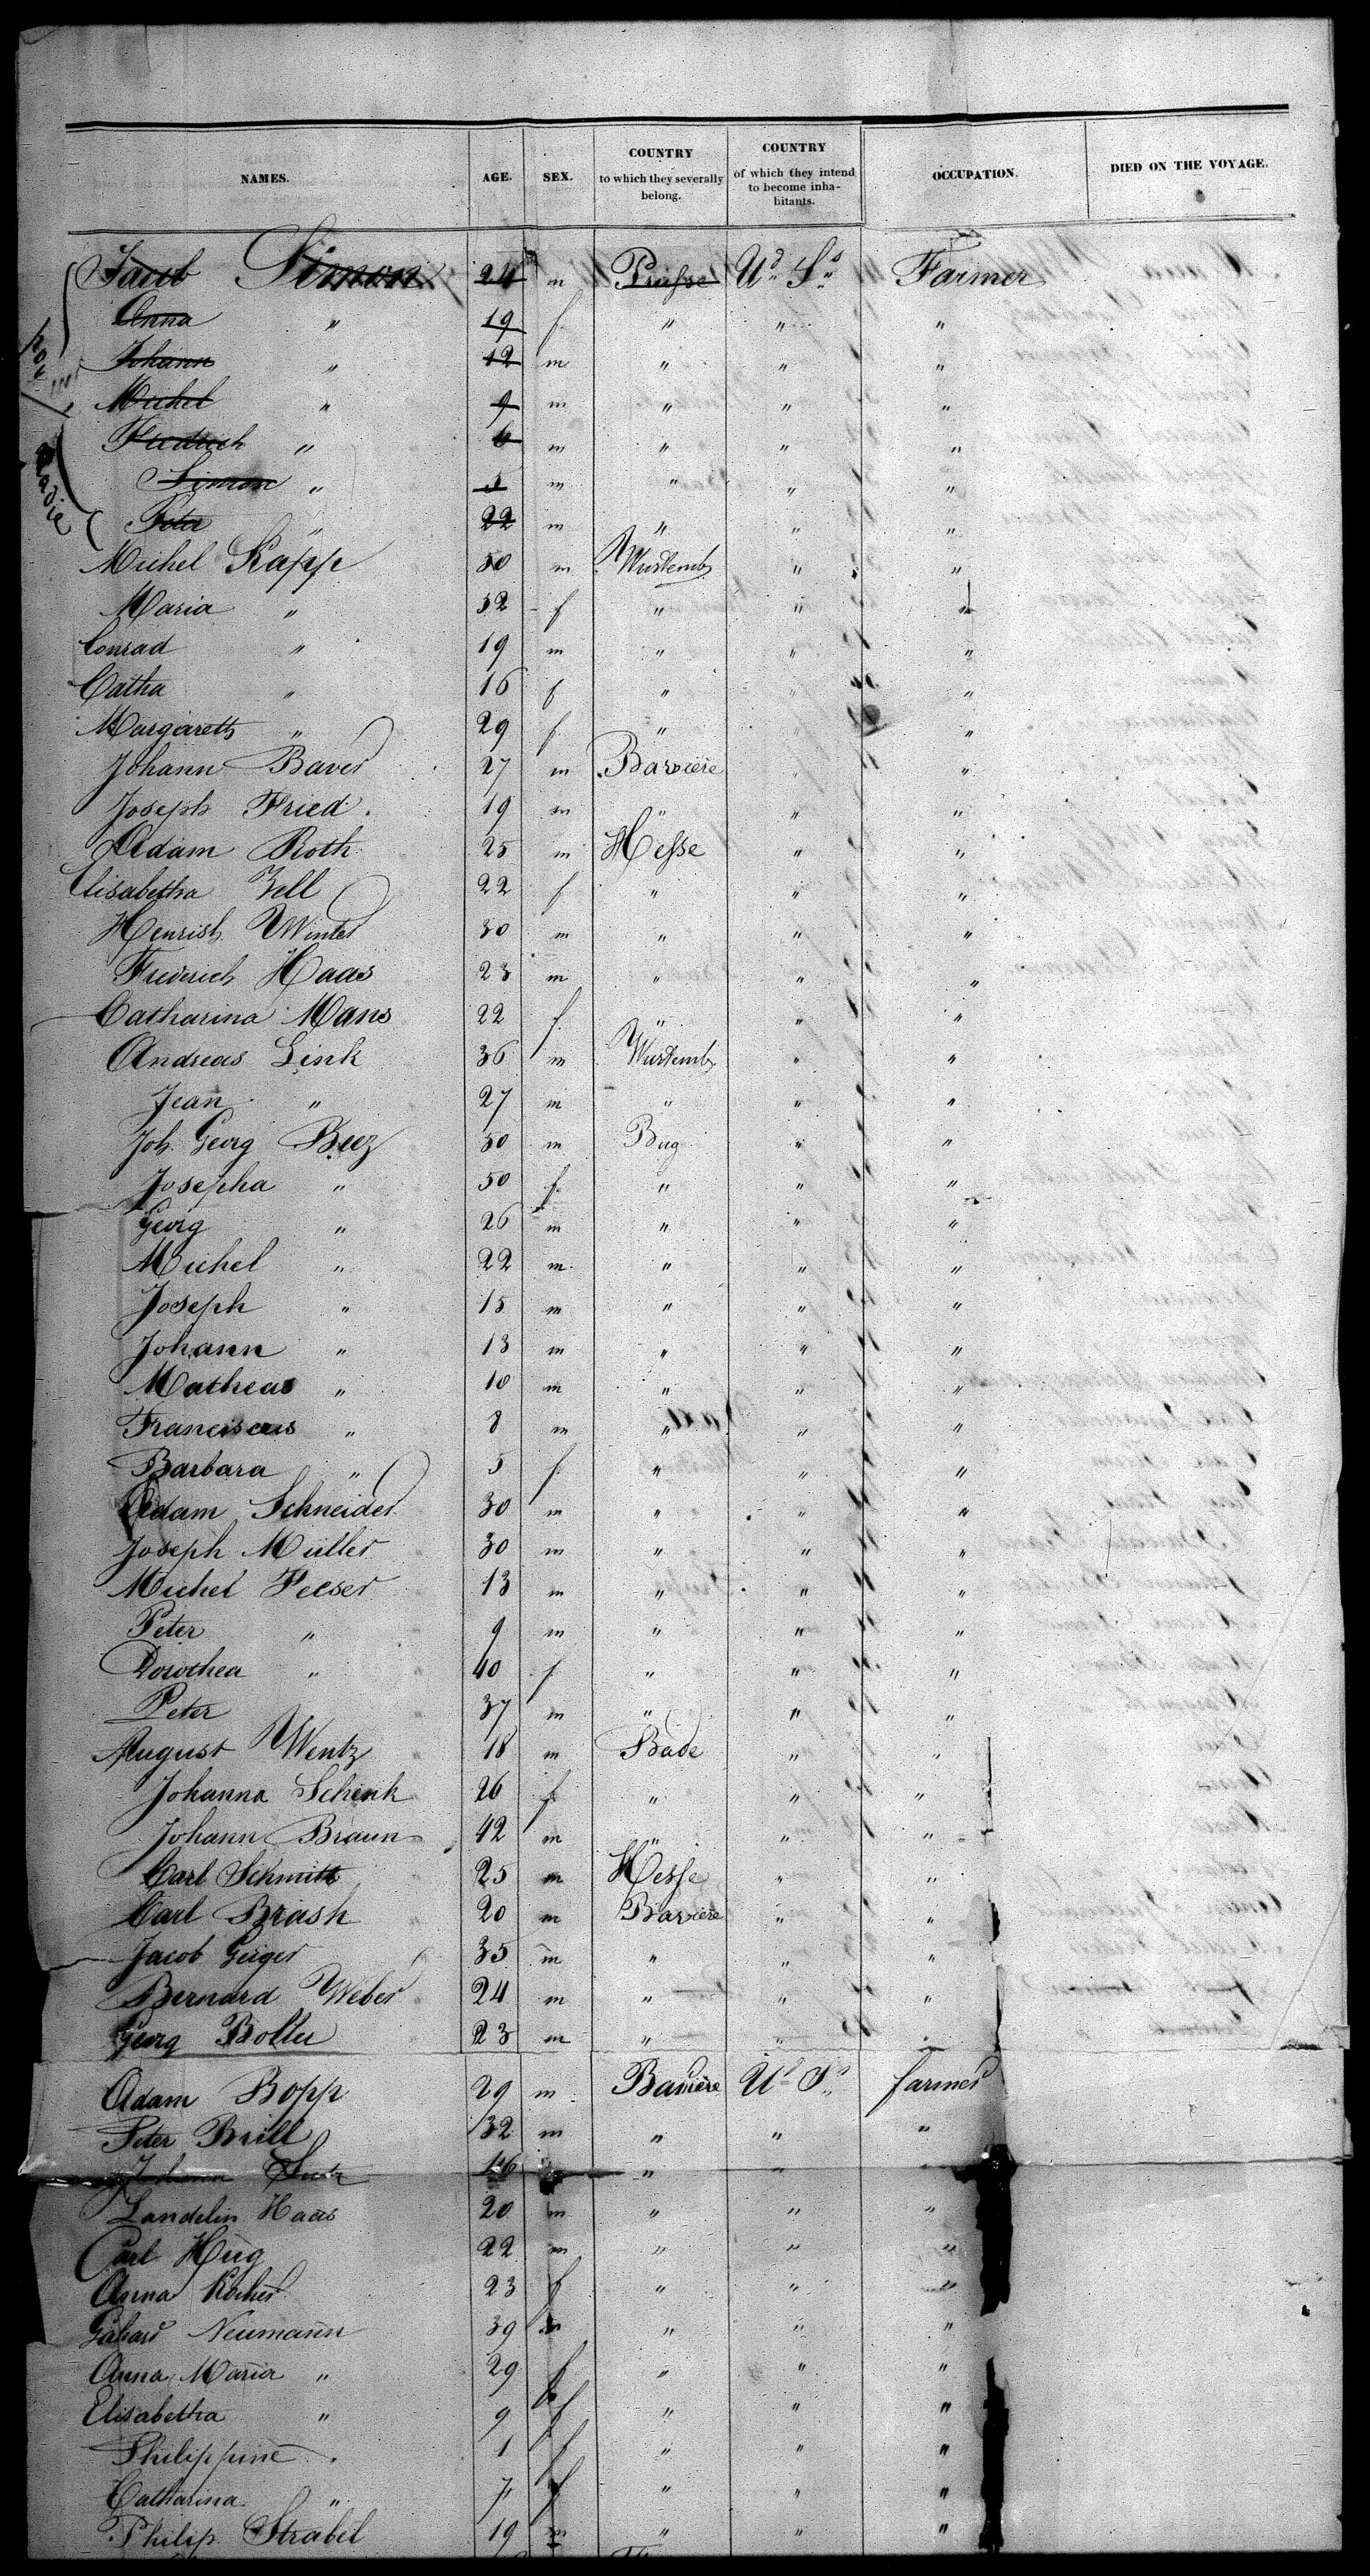 NAMES. AGE. SEX. COUNTRY to which they severally belong. COUNTRY of which they intend to become inhabitants. OCCUPATION. DIED ON THE VOYAGE.
Jacob Simon 24 m Prusse Ud Ss Farmer
Anna " 19 f " " "
Johann " 12 m " " "
Michel " 9 m " " "
Friedrich " 6 m " " "
Simon " 5 m " " "
Peter " 22 m " " "
Michel Rapp 50 m Wurtemb " "
Maria " 52 f " " "
Conrad " 19 m " " "
Catha " 16 f " " "
Margareth " 29 f " " "
Johann Baver 27 m Baviere " "
Joseph Fried. 19 m " " "
Adam Roth 25 m Hesse " "
Elisabetha Zell 22 f " " "
Henrish Winter 30 m " " "
Friederich Haas 23 m " " "
Catharina Mans 22 f " " "
Andreas Link 36 m Wurtemb " "
Jean " 27 m " " "
Joh. Georg Beez 50 m Bug " "
Josepha " 50 f " " "
Georg " 26 m " " "
Michel " 22 m " " "
Joseph " 15 m " " "
Johann " 13 m " " "
Matheas " 10 m " " "
Franciscus " 8 m " " "
Barbara " 5 f " " "
Adam Schneider 30 m " " "
Joseph Müller 30 m " " "
Michel Feeser 13 m " " "
Peter " 9 m " " "
Dorothea " 40 f " " "
Peter 37 m " " "
August Wentz 18 m Bade " "
Johanna Schenk 26 f " " "
Johann Braun 42 m " " "
Carl Schmitt 25 m Hesse " "
Carl Brash 20 m Baviere " "
Jacob Geiger 35 m " " "
Bernard Weber 24 m " " "
Georg Boller 23 m " " "
Adam Bopp 29 m Baviere Ud Ss farmer
Peter Brill 32 m " " "
Johann 16 " " "
Landelin Haas 20 m " " "
Carl Hug 22 m " " "
Anna Kocher 23 f " " "
Neumann 39 m " " "
Anna Maria " 29 f " " "
Elisabetha " 9 f " " "
Philippine " 1 f " " "
Catharina " 7 f " " "
Philip Strabel 19 m " " "